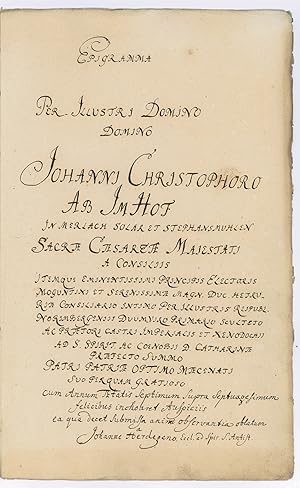 EPIGRAMMA
PER ILLUSTRI DOMINO
DOMINO
JOHANNI CHRISTOPHORO
AB IM HOF
IN MERLACH SOLAR ET STEPHANSMUHLEN
SACRÆ CÆSAREÆ MAIESTATI
A CONSILIIS
ITEMQUE EMINENTISSIMI PRINCIPIS ELECTORIS
MOGUNTINI ET SERENISSIMI MAGN. DUC. HETRU-
RIÆ CONSILIARIO INTIMO PER ILLUSTRIS REIPUBL.
NORIMBERGENSIS DUUMVIRO PRIMARIO SCULTETO
AC PRÆTORI CASTRI IMPERIALIS ET XENODOCHII
AD S. SPIRIT. AC COENOBII D. CATHARINÆ
PRÆFECTO SUMMO
PATRI PATRIÆ OPTIMO MÆCENATI
SUO PERQUAM GRATIOSO
cum Annum Ætatis Septimum Supra Septuagesimum
felicibus inchoaret Auspiciis
ea qua decet Submissa animi observantia oblatum
a
Johanne Herdegeno, Eccl. ad Spir. S. Antist.